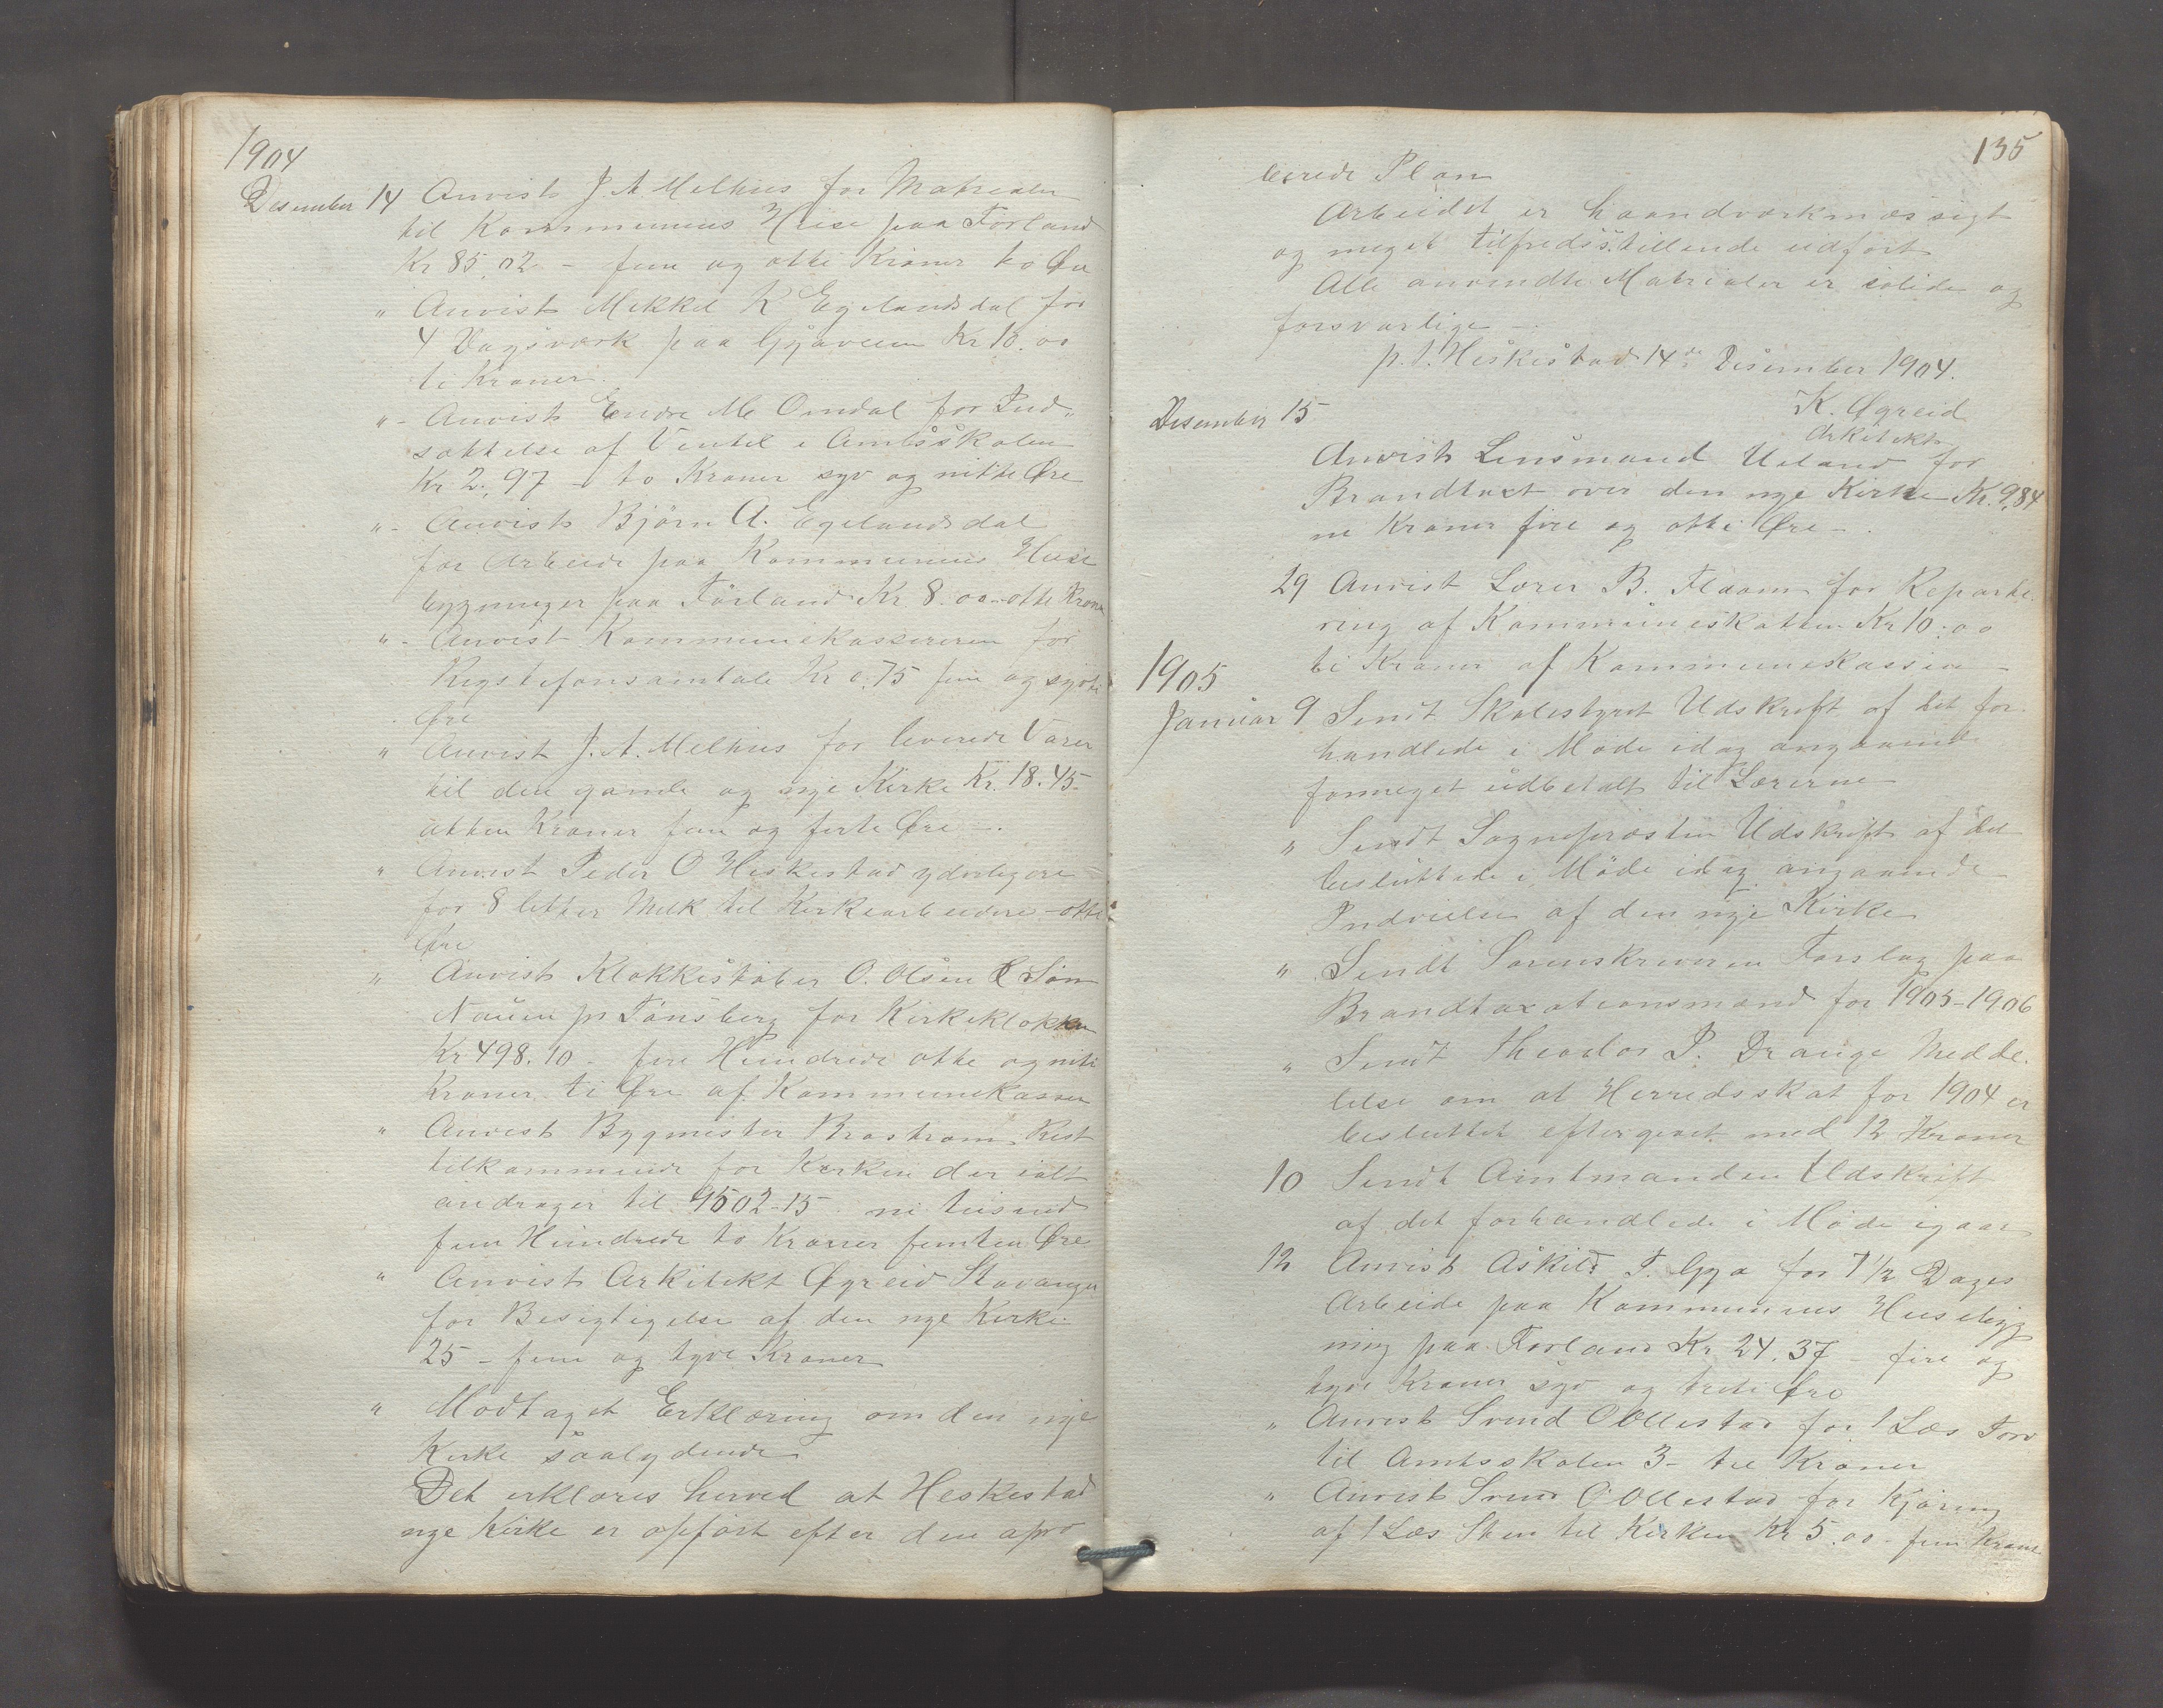 1904
Desember 14 Anvist J. A Melhus for Matrialer
til Kommunens Huse paa Förland
Kr 85,02 - fem og otti Kroner to Øre
" Anvist Mekkel K Egelandsdal for
4 Dagsværk paa Gyaveien Kr 10.00
ti Kroner
" - Anvist Endre M Omdal for Ind-
sættelse af Ventil i Amtsskolen
Kr 2,97 - to Kroner syv og nitti Øre
" - Anvist Bjørn A. Egelandsdal
for Arbeide paa Kommunens Huse
bygninger paa Förland Kr 8.00 - otte Kroner
" - Anvist Kommunekassereren for
Rigstefonsamtale Kr 0,75 fem og sytti
Øre
" Anvist J. A. Melhus for leverede Varer
til den gamle og nye Kirke Kr. 18.45-
atten Kroner fem og førti Øre -.
" Anvist Peder O Heskestad yderligere
for 8 litter Melk til Kirkearbeidere - otte
Øre
" Anvist Klokkestøber O. Olsen & Søn
Nauen pr Tønsberg for Kirkeklokken
Kr 498.10 - fire Hundrede otte og nitti
Kroner ti Øre af Kommunekassen
" Anvist Bygmester Brostrøm Rest
tilkommende for Kirken der ialt
andrager til 9502-15 ni tusind
fem Hundrede to Kroner femten Øre
" Anvist Arkitekt Øgreid Stavanger
for Besigtigelse af den nye Kirke
25 - fem og tyve Kroner
" Modtaget Erklæring om den nye
Kirke saalydende
Det erklæres herved at Heskestad
nye Kirke er opført efter den apro
135
berede Plan
Arbeidet er haandværkmæssigt
og meget tilfredsstillende udført
Alle anvendte Matrialer er solide og
forsvarlige -.
p. t. Heskestad 14de Desember 1904.
K. Øgreid
Arkitekt
Desember 15
Anvist Lensmand Ueland for
Brandtaxt over den nye Kirke Kr. 9,84
ni Kroner fire og otti Øre -.
29 Anvist Lærer B. Fldaam for Reparte
ring af Kommuneskatten Kr 10.00
ti Kroner af Kommunekassen -
1905
Januar 9 Sendt Skolestyret Udskrift af det for-
handlede i Møde idag angaaende
formeget udbetalt til Lærerne
" Sendt Sognepræsten Udskrift af det
besluttede i Møde idag angaaende
Indvielse af den nye Kirke
" Sendt Sorenskriveren Forslag paa
Brandtaxationsmænd for 1905-1906
" Sendt Theodor P. Drange Medde-
lelse om at Herredsskat for 1904 er
besluttet eftergivet med 12 Kroner
10 Sendt Amtmanden Udskrift
af det forhandlede i Møde igaar
12 Anvist Askild T. Gya for 7 1/2 Dages
Arbeide paa Kommunens Husebyg
ning paa Förland Kr 24,37 - fire og
tyve Kroner syv og treti Øre
" Anvist Svend O Ollestad for 1 Læs Torv
til Amtsskolen 3 - tre Kroner
" Anvist Svend O Ollestad for Kjøring
af 1 Læs Sten til Kirken Kr 5.00 - fem Kroner